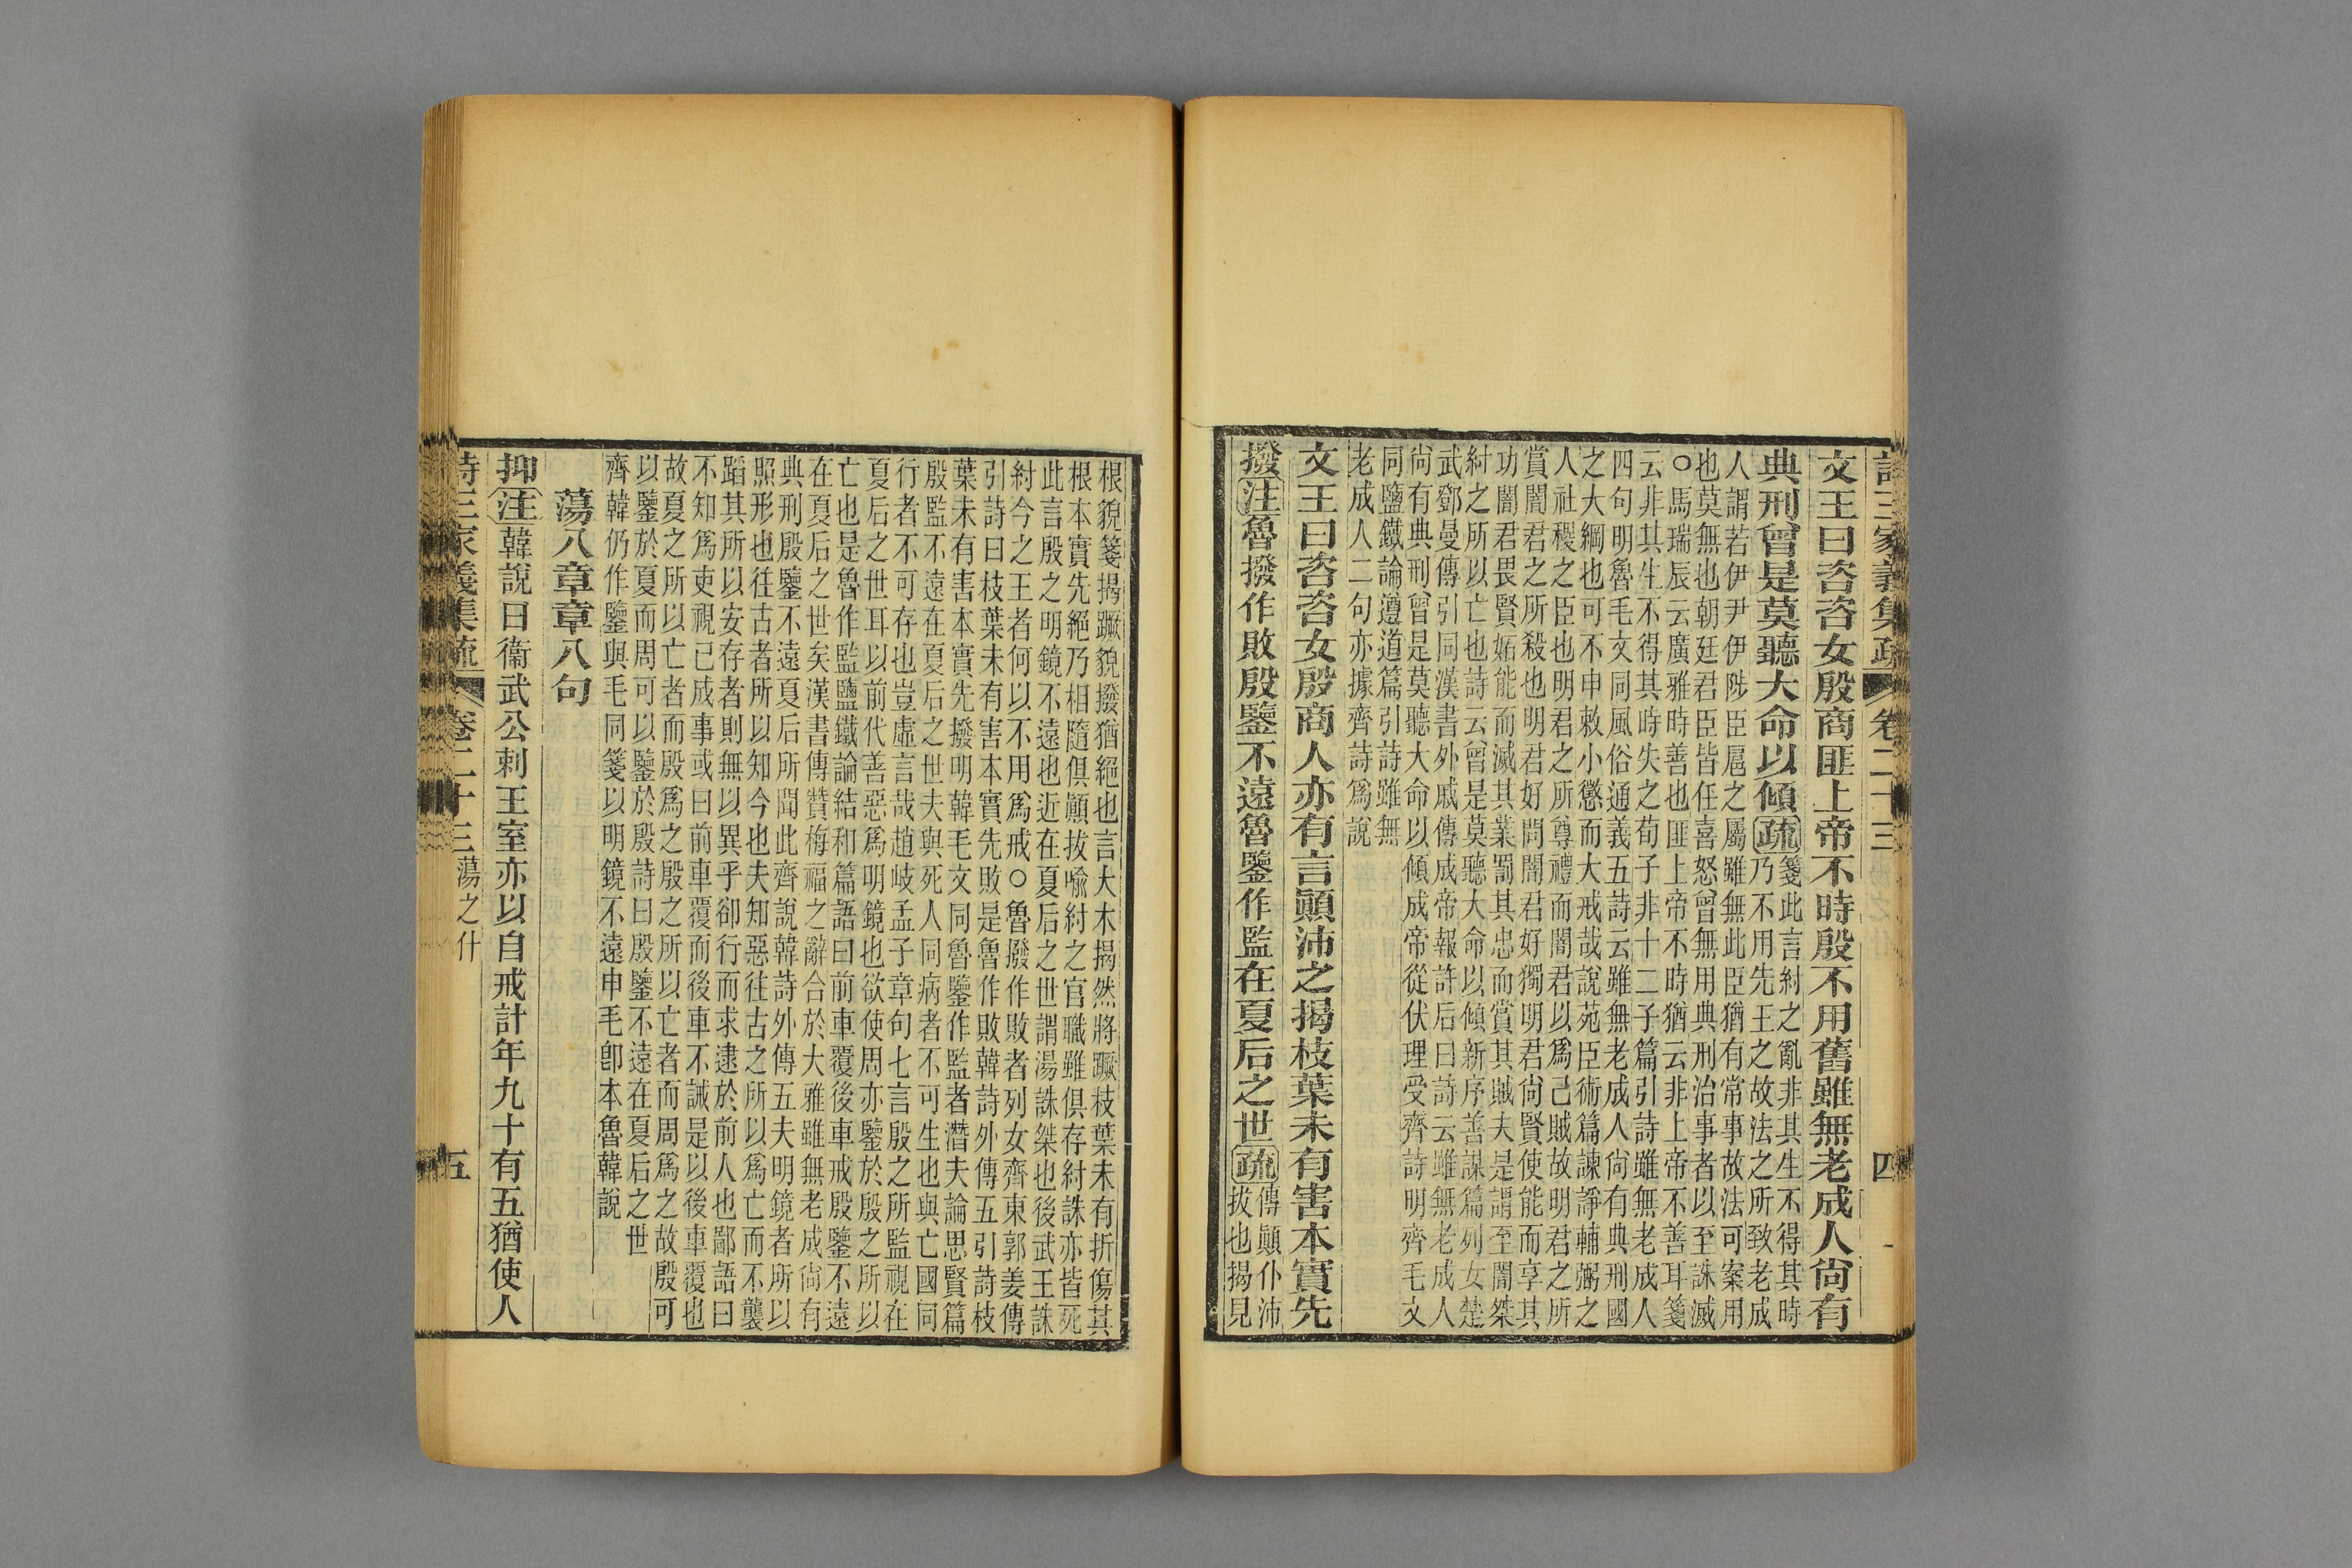 詩三家義集疏 卷二十三 四
文王曰咨咨女殷商匪上帝不時殷不用舊雖無老成人尙有
典刑曾是莫聽大命以傾疏
箋此言紂之亂非其生不得其時
乃不用先王之故法之所致老成
人謂若伊尹伊陟臣扈之屬雖無此臣猶有常事故法可案用
也莫無也朝廷君臣皆任喜怒曾無用典刑治事者以至誅滅
○馬瑞辰云廣雅時善也匪上帝不時猶云非上帝不善耳箋
云非其生不得其時失之荀子非十二子篇引詩雖無老成人
四句明魯毛文同風俗通義五詩云雖無老成人尙有典刑國
之大綱也可不申敕小懲而大戒哉說苑臣術篇諫諍輔弼之
人社稷之臣也明君之所尊禮而闇君以爲己賊故明君之所
賞闇君之所殺也明君好問闇君好獨明君尙賢使能而享其
功闇君畏賢妬能而滅其業罰其忠而賞其賊夫是謂至闇桀
紂之所以亡也詩云曾是莫聽大命以傾新序善謀篇列女楚
武鄧曼傳引同漢書外戚傳成帝報許后曰詩云雖無老成人
尙有典刑曾是莫聽大命以傾成帝從伏理受齊詩明齊毛文
同鹽鐵論遵道篇引詩雖無
老成人二句亦據齊詩爲說
文王曰咨咨女殷商人亦有言顚沛之揭枝葉未有害本實先
撥注魯撥作敗殷鑒不遠魯鑒作監在夏后之世疏
傳顚仆沛
拔也揭見
根貌箋揭蹶貌撥猶絕也言大木揭然將蹶枝葉未有折傷其
根本實先絕乃相隨俱顚拔喻紂之官職雖俱存紂誅亦皆死
此言殷之明鏡不遠也近在夏后之世謂湯誅桀也後武王誅
紂今之王者何以不用爲戒○魯撥作敗者列女齊東郭姜傳
引詩曰枝葉未有害本實先敗是魯作敗韓詩外傳五引詩枝
葉未有害本實先撥明韓毛文同魯鑒作監者潛夫論思賢篇
殷監不遠在夏后之世夫與死人同病者不可生也與亡國同
行者不可存也豈虛言哉趙岐孟子章句七言殷之所監視在
夏后之世耳以前代善惡爲明鏡也欲使周亦鑒於殷之所以
亡也是魯作監鹽鐵論結和篇語曰前車覆後車戒殷鑒不遠
在夏后之世矣漢書傳贊梅福之辭合於大雅雖無老成尙有
典刑殷鑒不遠夏后所聞此齊說韓詩外傳五夫明鏡者所以
照形也往古者所以知今也夫知惡往古之所以爲亡而不襲
蹈其所以安存者則無以異乎卻行而求逮於前人也鄙語曰
不知爲吏視已成事或曰前車覆而後車不誡是以後車覆也
故夏之所以亡者而殷爲之殷之所以亡者而周爲之故殷可
以鑒於夏而周可以鑒於殷詩曰殷鑒不遠在夏后之世
齊韓仍作鑒與毛同箋以明鏡不遠申毛卽本魯韓說
蕩八章章八句
抑注韓說曰衞武公刺王室亦以自戒計年九十有五猶使人
詩三家義集疏 卷二十三 蕩之什 五